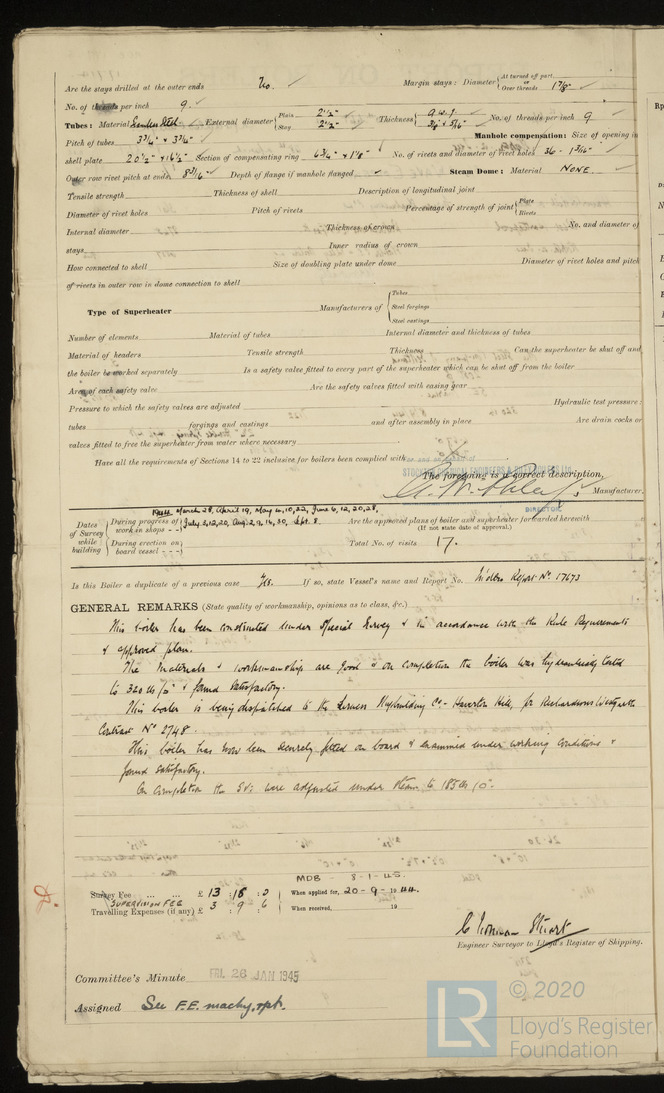 Are the stays drilled at the outer ends No. ✓ Margin stays: Diameter { At turned off part or Over threads 1 7/8" ✓
No. of threads per inch 9. ✓
Tubes: Material Seamless Steel ✓ External diameter { Plain 2 1/2" ✓ Stay 2 1/2" ✓ Thickness { 9 W.G. 5/16" ✓ No. of threads per inch 9 ✓
Pitch of tubes 3 3/4" x 3 3/4" ✓ Manhole compensation: Size of opening in
shell plate 20 1/2" x 16 1/2" Section of compensating ring 6 3/4" x 1 1/8" ✓ No. of rivets and diameter of rivet holes 36 - 1 3/16" ✓
Outer row rivet pitch at ends 8 3/16" ✓ Depth of flange if manhole flanged ✓ Steam Dome: Material NONE. ✓
Tensile strength Thickness of shell Description of longitudinal joint
Diameter of rivet holes Pitch of rivets Percentage of strength of joint { Plate Rivets
Internal diameter Thickness of crown No. and diameter of
stays Inner radius of crown
How connected to shell Size of doubling plate under dome Diameter of rivet holes and pitch
of rivets in outer row in dome connection to shell
Type of Superheater Manufacturers of { Tubes Steel forgings Steel castings
Number of elements Material of tubes Internal diameter and thickness of tubes
Material of headers Tensile strength Thickness Can the superheater be shut off and
the boiler be worked separately Is a safety valve fitted to every part of the superheater which can be shut off from the boiler
Area of each safety valve Are the safety valves fitted with easing gear
Pressure to which the safety valves are adjusted Hydraulic test pressure:
tubes forgings and castings and after assembly in place Are drain cocks or
valves fitted to free the superheater from water where necessary
Have all the requirements of Sections 14 to 22 inclusive for boilers been complied with
The foregoing is a correct description,
Manufacturer.
DIRECTOR
1944 March 28, April 19, May 4, 10, 22, June 6, 12, 20, 28,
Dates of Survey while building { During progress of work in shops - - July 5, 12, 20, Aug. 2, 9, 16, 30, Sept. 8. Are the approved plans of boiler and superheater forwarded herewith
(If not state date of approval.)
During erection on board vessel - - - Total No. of visits 17.
Is this Boiler a duplicate of a previous case Yes. If so, state Vessel's name and Report No. Report No. 17673
GENERAL REMARKS (State quality of workmanship, opinions as to class, &c.)
This boiler has been constructed under Special Survey & in accordance with the Rule Requirements
& approved plan.
The materials & workmanship are good & on completion the boiler was hydraulically tested
to 320 lbs/□" & found satisfactory.
This boiler is being dispatched to the Furness Shipbuilding Co - Haverton Hill, for Richardsons Westgarth
Contract No 2748.
This boiler has now been securely fitted on board & examined under working conditions &
found satisfactory.
On completion the SVs were adjusted under steam to 185 lbs/□".
MDB - 8-1-45.
Survey Fee ... ... £ 13 : 18 : 0 When applied for, 20-9-1944.
SUPERVISION FEE
Travelling Expenses (if any) £ 3 : 9 : 6 When received, 19
C Norman Stuart
Engineer Surveyor to Lloyd's Register of Shipping.
Committee's Minute FRI. 26 JAN 1945
Assigned See F.E. machy. rpt.
© 2020
LR
Lloyd's Register
Foundation